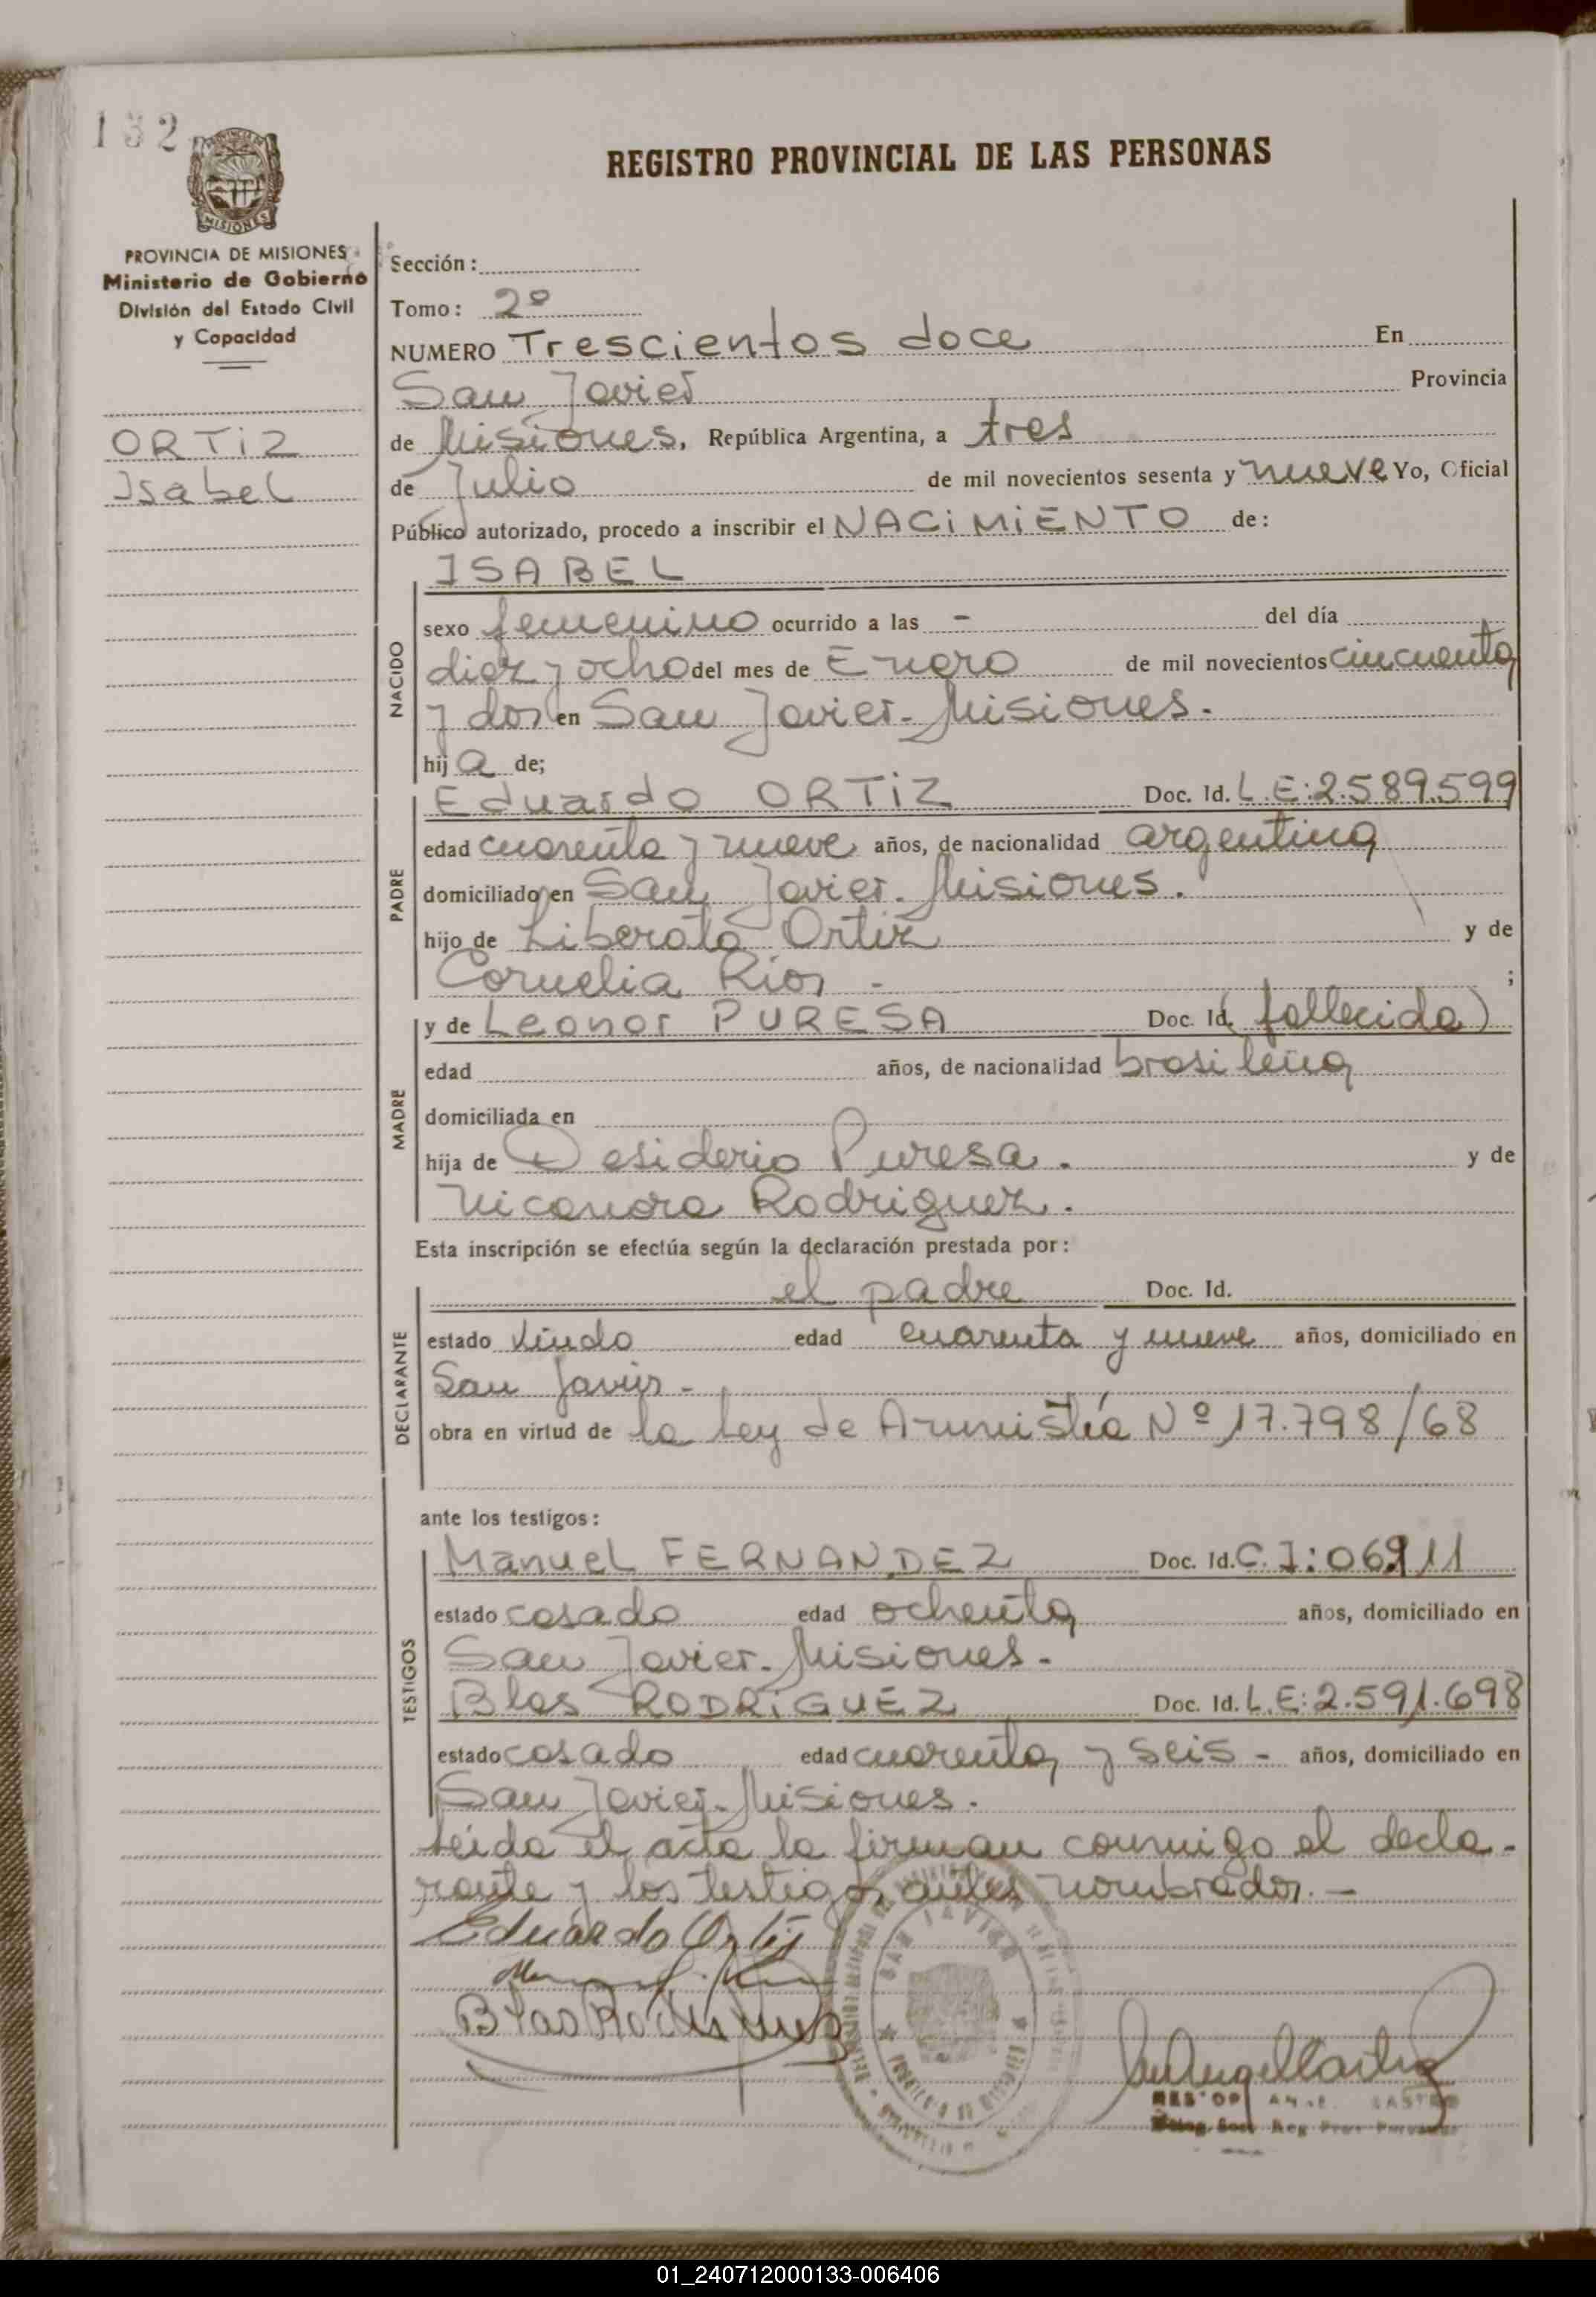 132
REGISTRO PROVINCIAL DE LAS PERSONAS
MISIONES
PROVINCIA DE MISIONES
Ministerio de Gobierno
División del Estado Civil
y Capacidad
ORTiZ
Isabel
Sección:
Tomo: 2º
NUMERO Trescientos doce En
San Javier Provincia
de Misiones, República Argentina, a tres
de Julio de mil novecientos sesenta y nueve Yo, Oficial
Público autorizado, procedo a inscribir el NACiMiENTO de:
NACIDO
ISABEL
sexo femenino ocurrido a las - del día
diez y ocho del mes de Enero de mil novecientos cincuenta
y dos en San Javier-Misiones.
hija de;
PADRE
Eduardo ORTiZ Doc. Id. L.E:2.589.599
edad cuarenta y nueve años, de nacionalidad argentina
domiciliado en San Javier-Misiones.
hijo de Liberato Ortiz y de
Cornelia Rios - ;
MADRE
y de Leonor PURESA Doc. Id. (fallecida)
edad años, de nacionalidad brasileña
domiciliada en
hija de Desiderio Puresa. y de
Nicanora Rodriguez.
Esta inscripción se efectúa según la declaración prestada por:
DECLARANTE
el padre Doc. Id.
estado Viudo edad cuarenta y nueve años, domiciliado en
San Javier-
obra en virtud de la Ley de Amnistía Nº 17.798/68
ante los testigos:
TESTIGOS
Manuel FERNANDEZ Doc. Id. C.I:06911
estado casado edad ochenta años, domiciliado en
San Javier-Misiones-
Blas RODRiGUEZ Doc. Id. L.E:2.591.698
estado casado edad cuarenta y seis - años, domiciliado en
San Javier-Misiones.
Leída el acta la firman conmigo el decla-
rante y los testigos antes nombrados.-
Eduardo Ortiz
Blas Rodriguez
SAN JAVIER
01_240712000133-006406